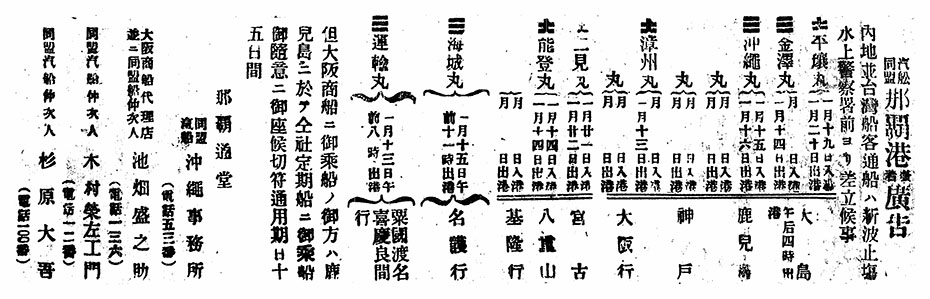 汽船同盟 那覇港發着廣告
内地並台灣船客通船ハ新波止塲
水上警察署前ヨリ差立候事
平壤丸 一月十九日入港 一月二十日出港 大島
金澤丸 月 日入港 一月十四日午后四時出港
沖繩丸 一月十五日入港 一月十六日出港 鹿兒島
丸 月 日入港 月 日出港
丸 月 日入港 月 日出港 神戸
漳州丸 一月十三日入港 月 日出港
丸 月 日入港 月 日出港 大阪行
二見丸 一月廿一日入港 一月廿二日出港 宮古
能登丸 一月十四日入港 一月十四日出港 八重山
月 日入港 月 日出港 基隆行
海城丸 一月十五日午前十一時出港 名護行
運輸丸 一月十三日午前八時出港 粟國渡名喜慶良間行
但大阪商船ニ御乘船ノ御方ハ鹿
兒島ニ於テ仝社定期船ニ御乘船
御隨意ニ御座候切符通用期日十
五日間
那覇通堂
同盟汽船 沖繩事務所
(電話五三番)
大阪商船代理店並ニ同盟船仲次人 池畑盛之助
(電話一三六)
同盟汽船仲次人 木村榮左工門
(電話一一二番)
同盟汽船仲次人 杉原大吾
(電話一〇〇番)